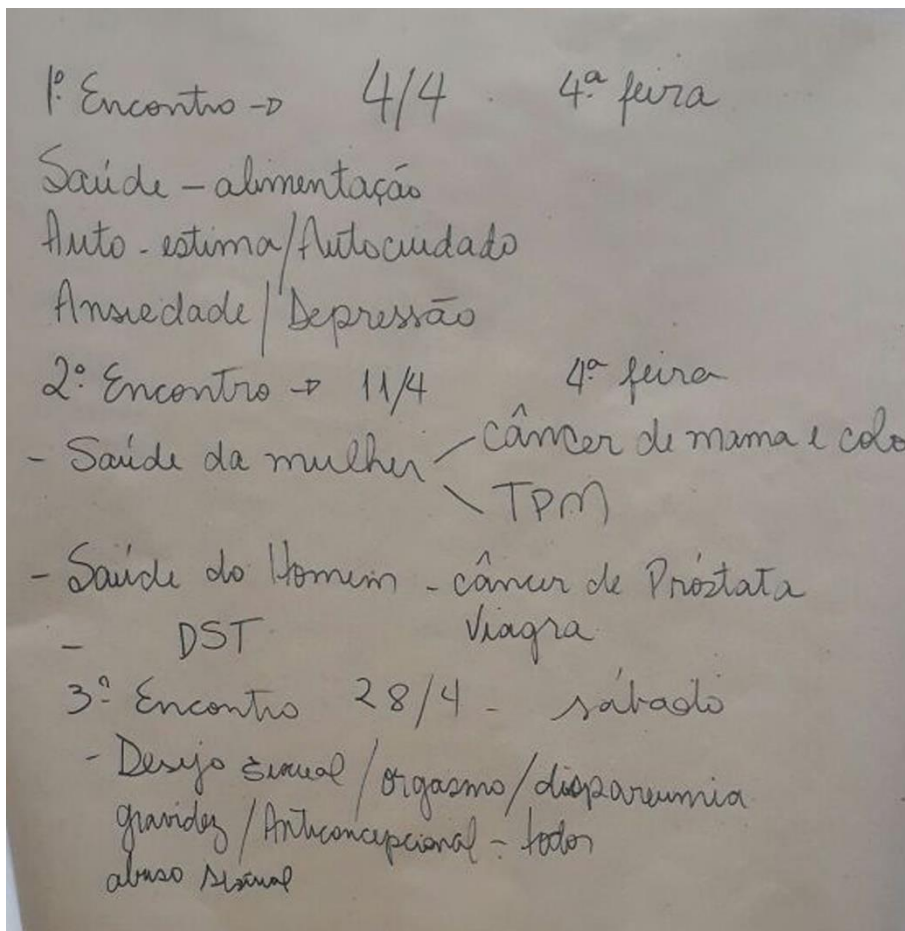 1º Encontro → 4/4. 4ª feira
Saúde - alimentação
Auto-estima/Autocuidado
Ansiedade/Depressão
2º Encontro → 11/4 4ª feira
- Saúde da mulher câncer de mama e colo
TPM
- Saúde do Homem - câncer de Próstata
- DST Viagra
3º Encontro 28/4 - sábado
- Desejo sexual/orgasmo/dispareumia
gravidez/Anticoncepcional - todos
abuso sexual